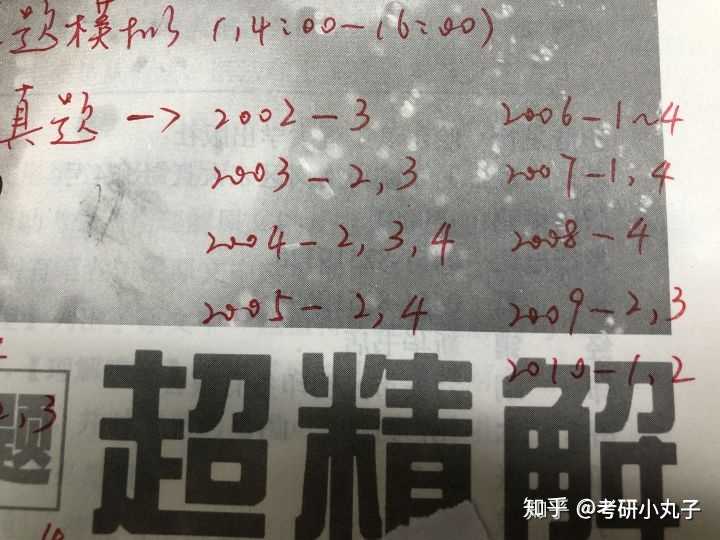 题模拟 (14:00-16:00)
真题 -> 2002-3
2003-2,3
2004-2,3,4
2005-2,4
2006-1~4
2007-1,4
2008-4
2009-2,3
2010-1,2
2,3
题
超精解
知乎 @考研小丸子